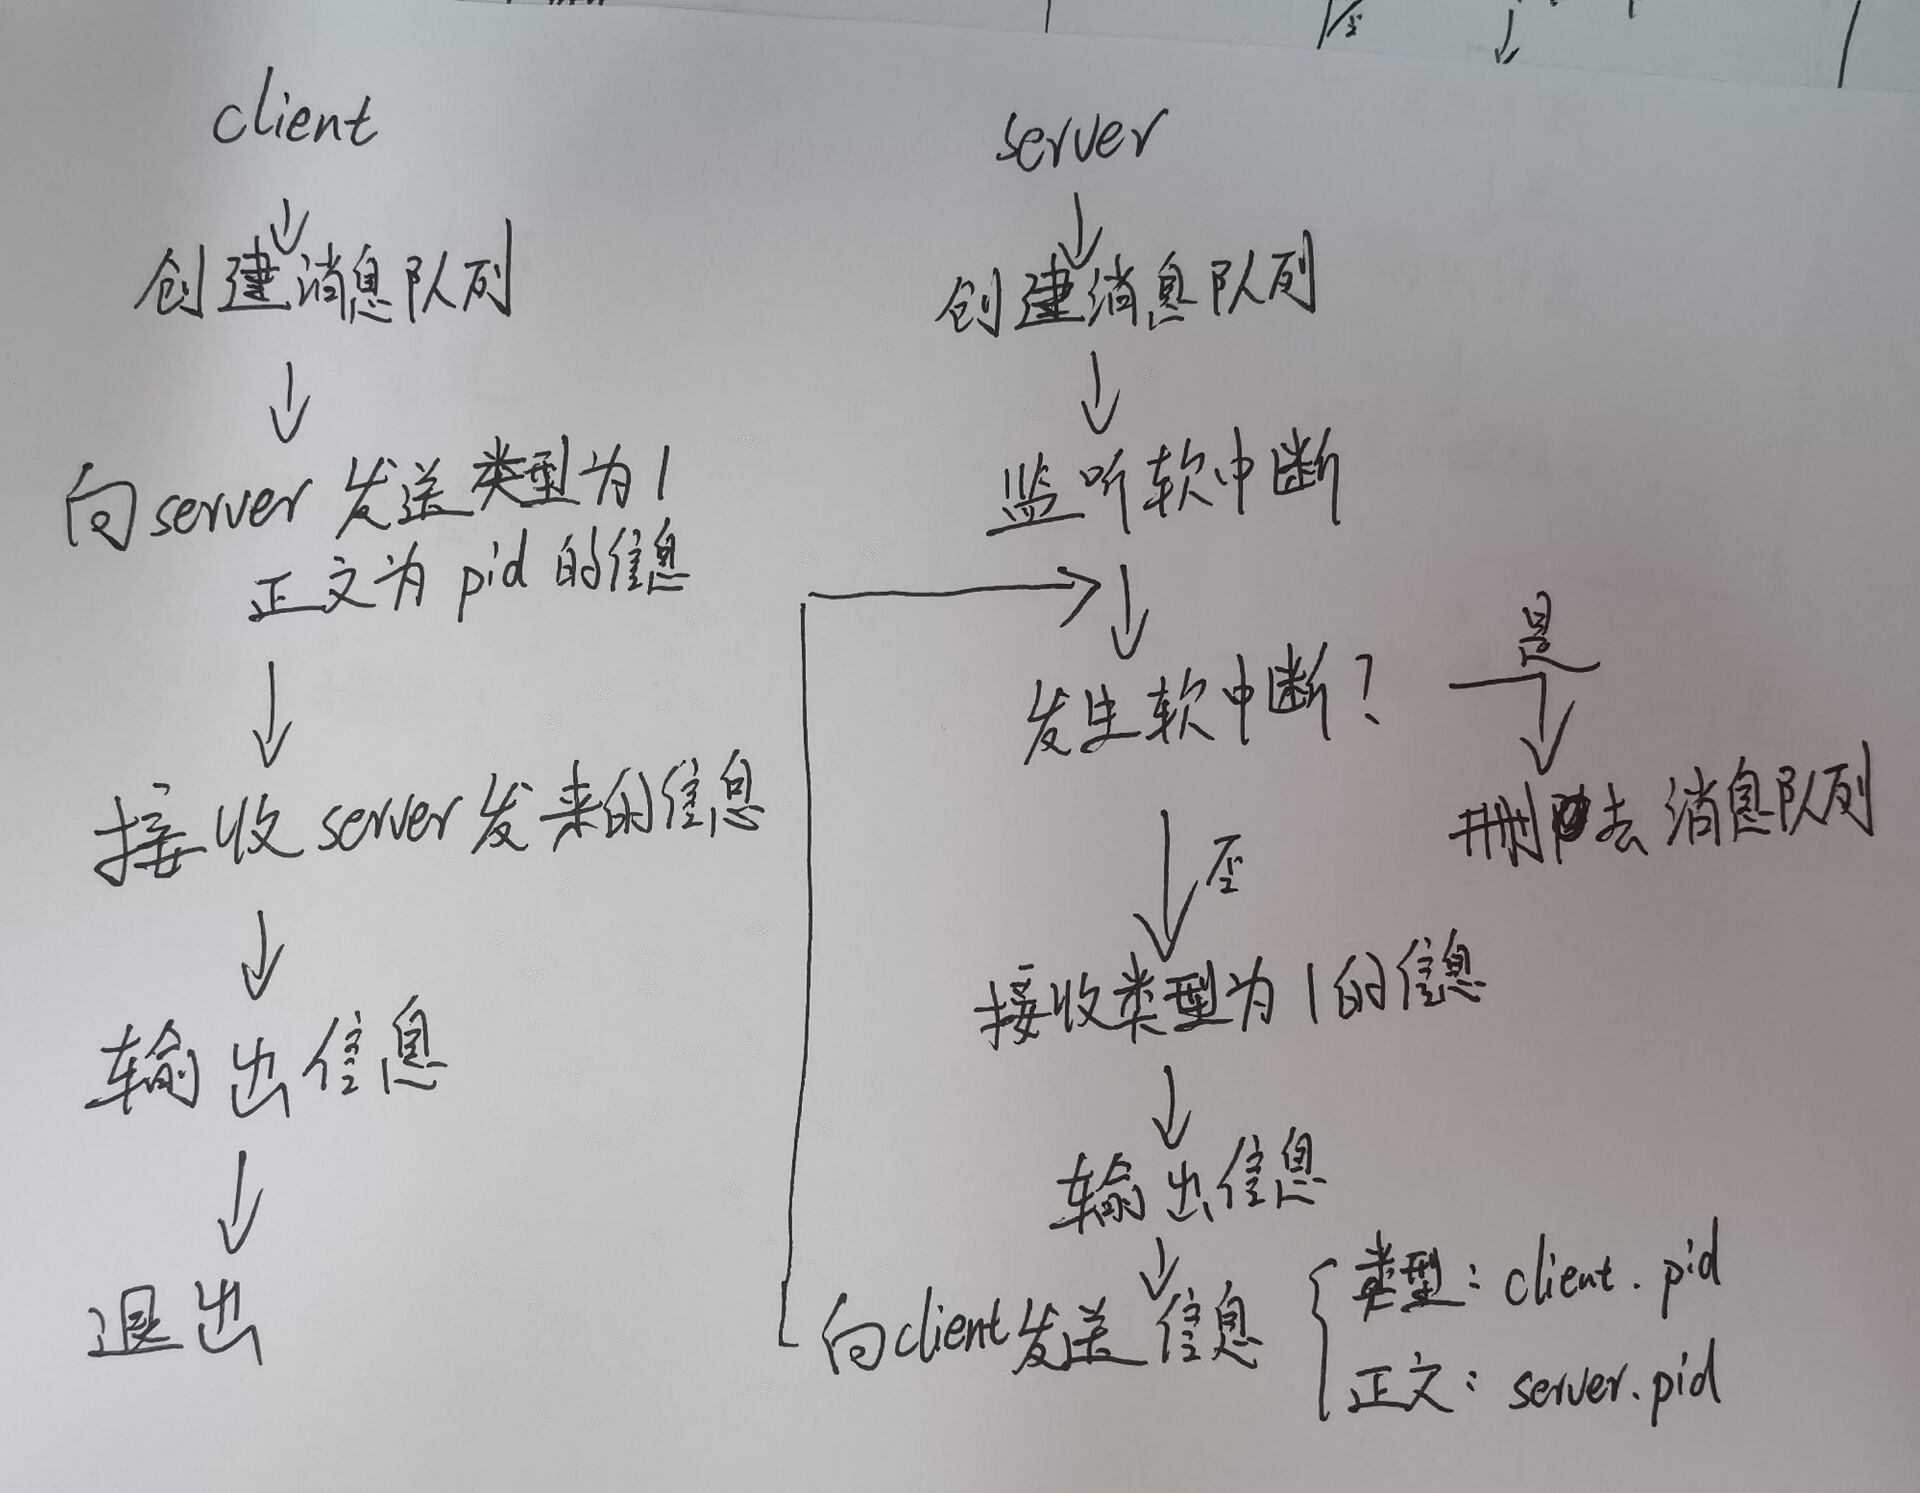 否
client
创建消息队列
向server发送类型为1
正文为pid的信息
接收server发来的信息
输出信息
退出
server
创建消息队列
监听软中断
发生软中断?
是
删去消息队列
否
接收类型为1的信息
输出信息
向client发送信息
类型:client.pid
正文:server.pid